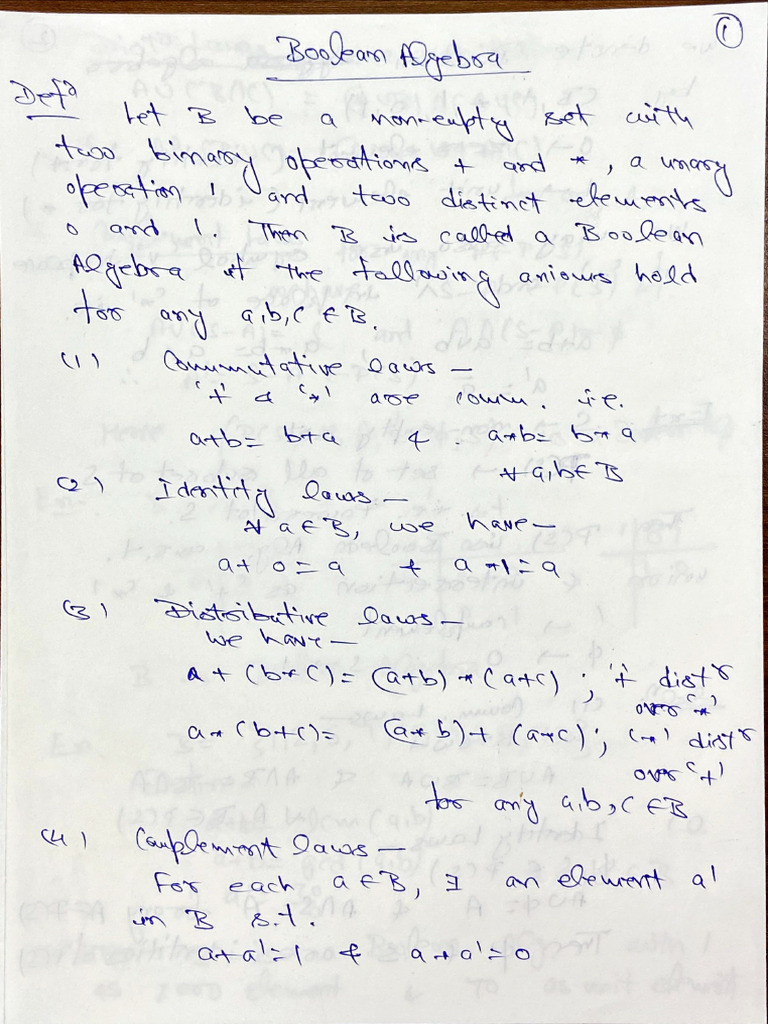 ①
Boolean Algebra
Defⁿ Let B be a non-empty set with
two binary operations + and *, a unary
operation ' and two distinct elements
0 and 1. Then B is called a Boolean
Algebra if the following axioms hold
for any a,b,c ∈ B.
(1) Commutative laws –
'+' & '*' are comm. i.e.
a+b = b+a & a*b = b*a
∀ a,b ∈ B
(2) Identity laws –
∀ a ∈ B, we have –
a + 0 = a & a*1 = a
(3) Distributive laws –
we have –
a + (b*c) = (a+b) * (a+c) ; '+' distr
over '*'
a * (b+c) = (a*b) + (a*c) ; '*' distr
over '+'
for any a,b,c ∈ B
(4) Complement laws –
For each a ∈ B, ∃ an element a'
in B s.t.
a+a' = 1 & a*a' = 0